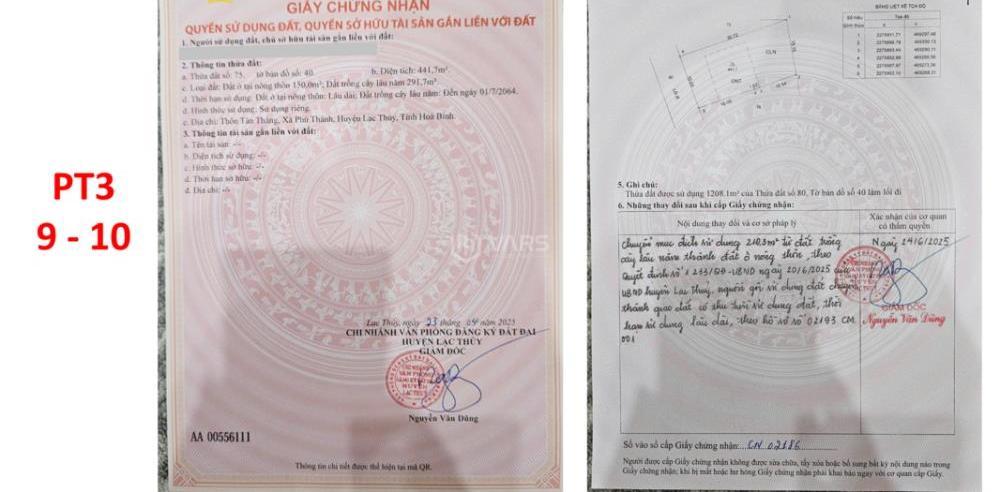 PT3
9 - 10
GIẤY CHỨNG NHẬN
QUYỀN SỬ DỤNG ĐẤT, QUYỀN SỞ HỮU TÀI SẢN GẮN LIỀN VỚI ĐẤT
1. Người sử dụng đất, chủ sở hữu tài sản gắn liền với đất:
2. Thông tin thửa đất:
a. Thửa đất số: 75, tờ bản đồ số: 40 b. Diện tích: 441,7m²
c. Loại đất: Đất ở tại nông thôn 150,0m²; Đất trồng cây lâu năm 291,7m²
d. Thời hạn sử dụng: Đất ở tại nông thôn: Lâu dài; Đất trồng cây lâu năm: Đến ngày 01/7/2064.
đ. Hình thức sử dụng: Sử dụng riêng.
e. Địa chỉ: Thôn Tân Thắng, Xã Phú Thành, Huyện Lạc Thủy, Tỉnh Hoà Bình.
3. Thông tin tài sản gắn liền với đất:
a. Tên tài sản: -/-
b. Diện tích sử dụng: -/-
c. Hình thức sở hữu: -/-
d. Thời hạn sở hữu: -/-
đ. Địa chỉ: -/-
Lạc Thủy, ngày 23 tháng 05 năm 2025
CHI NHÁNH VĂN PHÒNG ĐĂNG KÝ ĐẤT ĐAI
HUYỆN LẠC THỦY
GIÁM ĐỐC
Nguyễn Văn Dũng
AA 00556111
Thông tin chi tiết được thể hiện tại mã QR.
BẢNG LIỆT KÊ TỌA ĐỘ
Số hiệu
CLN
ONT
5. Ghi chú:
Thửa đất được sử dụng 1208.1m² của Thửa đất số 80, Tờ bản đồ số 40 làm lối đi
6. Những thay đổi sau khi cấp Giấy chứng nhận:
Nội dung thay đổi và cơ sở pháp lý
Xác nhận của cơ quan
có thẩm quyền
Chuyển mục đích sử dụng 210,3m² từ đất trồng
cây lâu năm thành đất ở nông thôn, theo
Quyết định số 1233/QĐ-UBND ngày 20/6/2025 của
UBND huyện Lạc Thủy, người gửi sử dụng đất chuyển
thành giao đất có thu tiền sử dụng đất, thời
hạn sử dụng lâu dài, theo hồ sơ số 02193 CM
001
Ngày 24/6/2025
GIÁM ĐỐC
Nguyễn Văn Dũng
Số vào sổ cấp Giấy chứng nhận: CN 02186
Người được cấp Giấy chứng nhận không được sửa chữa, tẩy xóa hoặc bổ sung bất kỳ nội dung nào trong
Giấy chứng nhận; khi bị mất hoặc hư hỏng Giấy chứng nhận phải khai báo ngay với cơ quan cấp Giấy.